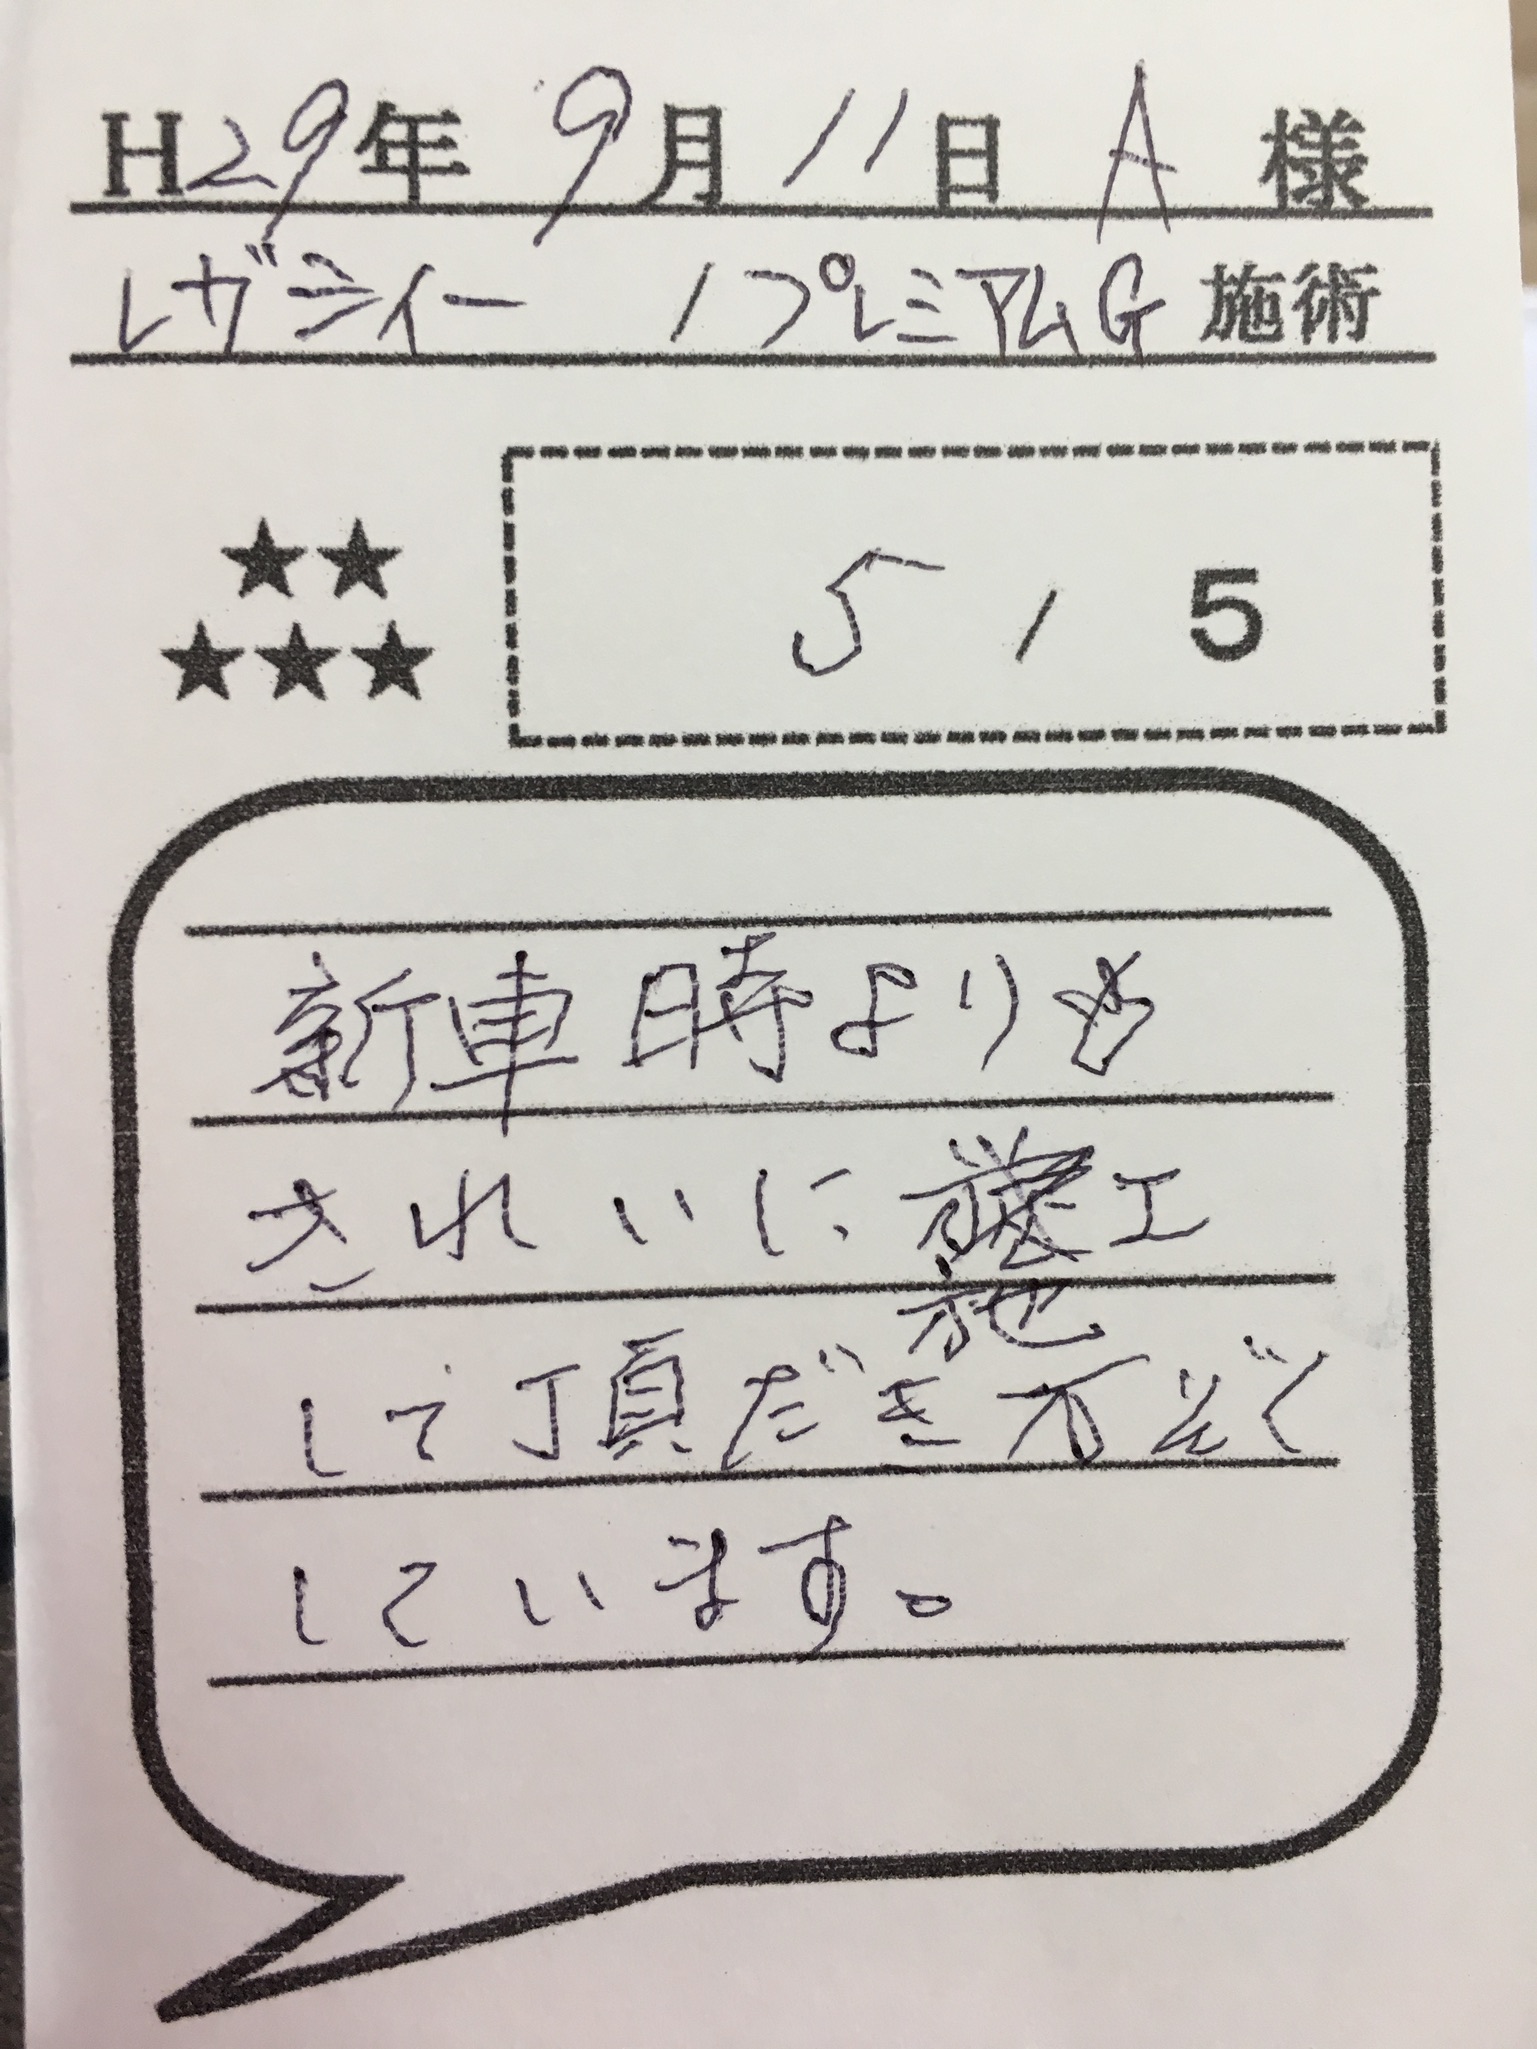 H29年 9月 11日 A 様
レガシィー / プレミアムG 施術
★★
★★★
5 / 5
新車時よりも
きれいに施工
して頂だき万ぞく
しています。